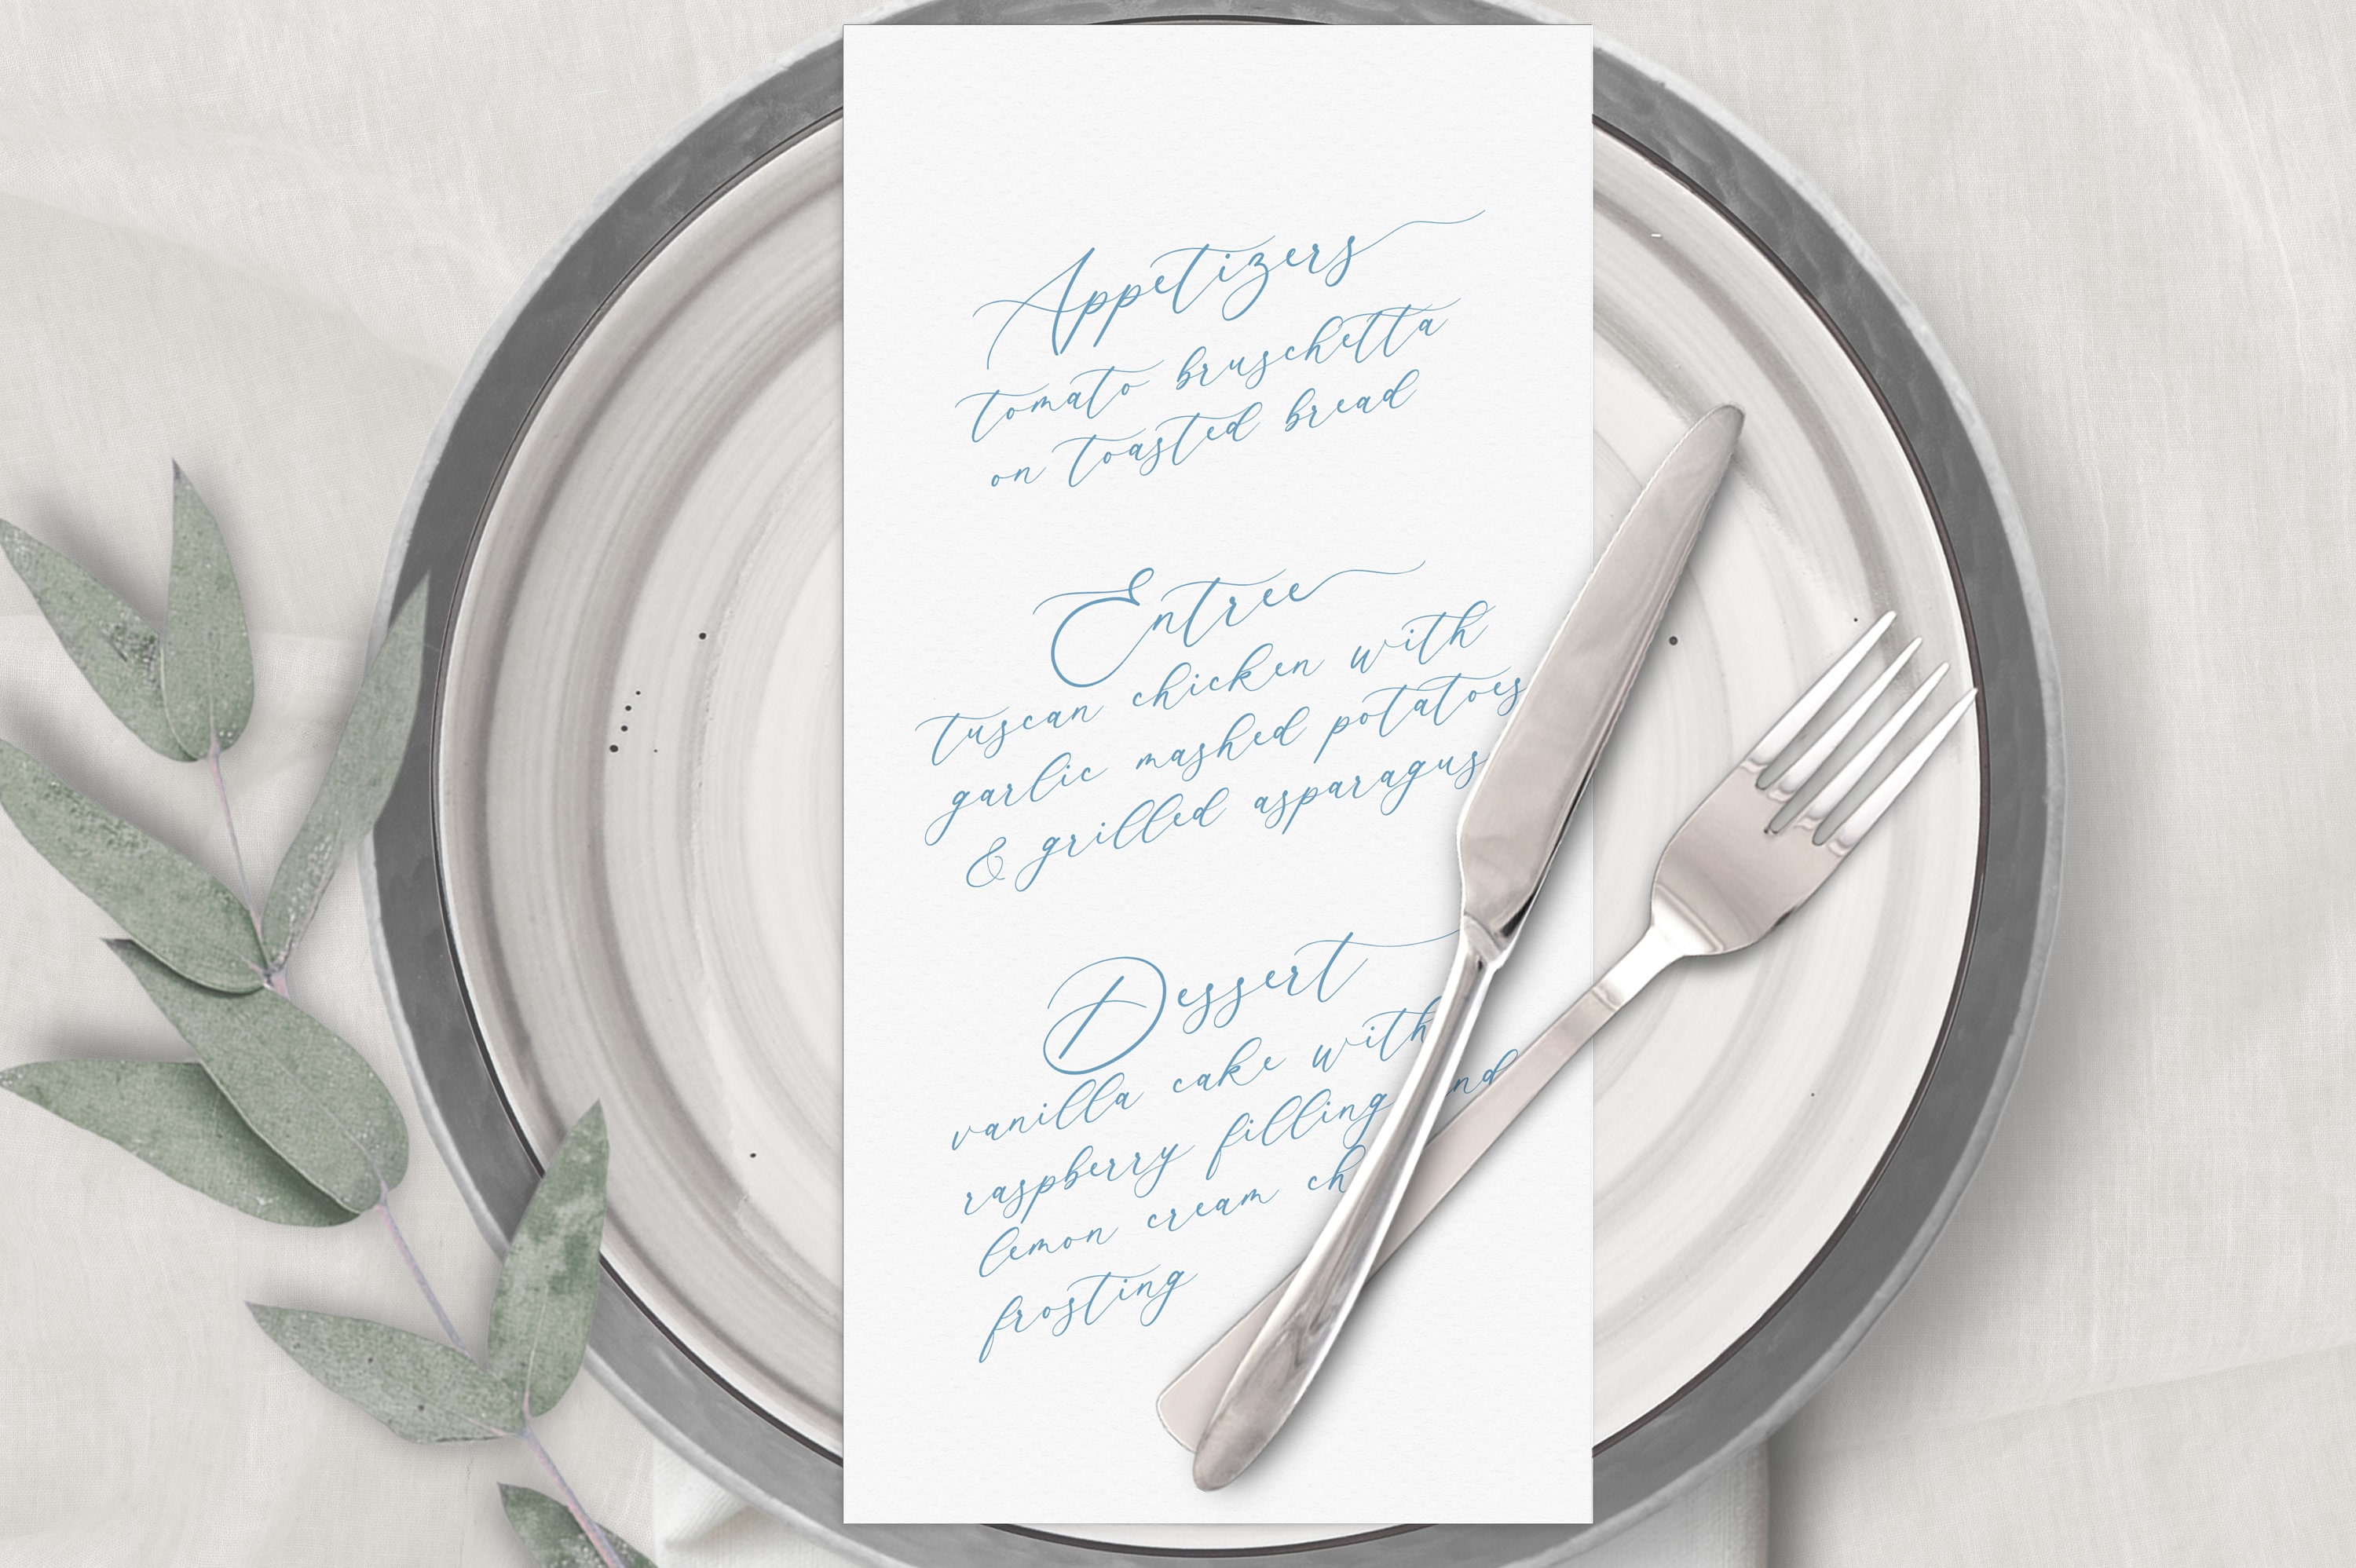 Appetizers
tomato bruschetta
on toasted bread
Entree
tuscan chicken with
garlic mashed potatoes
& grilled asparagus
Dessert
vanilla cake with
raspberry filling
lemon cream
frosting